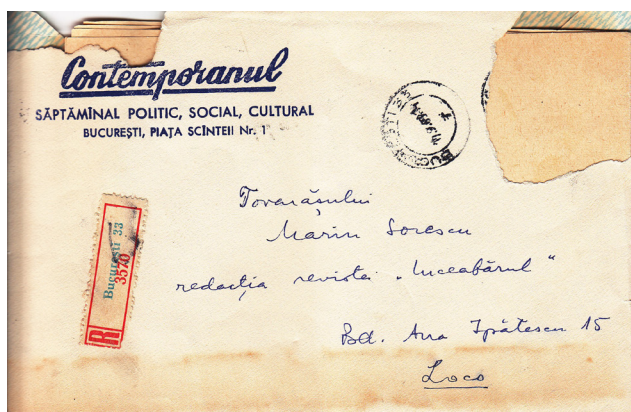 Contemporanul
SĂPTĂMÎNAL POLITIC, SOCIAL, CULTURAL
BUCUREȘTI, PIAȚA SCÎNTEII Nr. 1
București 33
3570
R
Tovarășului
Marin Sorescu
redacția revistei „Luceafărul"
Bd. Ana Ipătescu 15
Loco